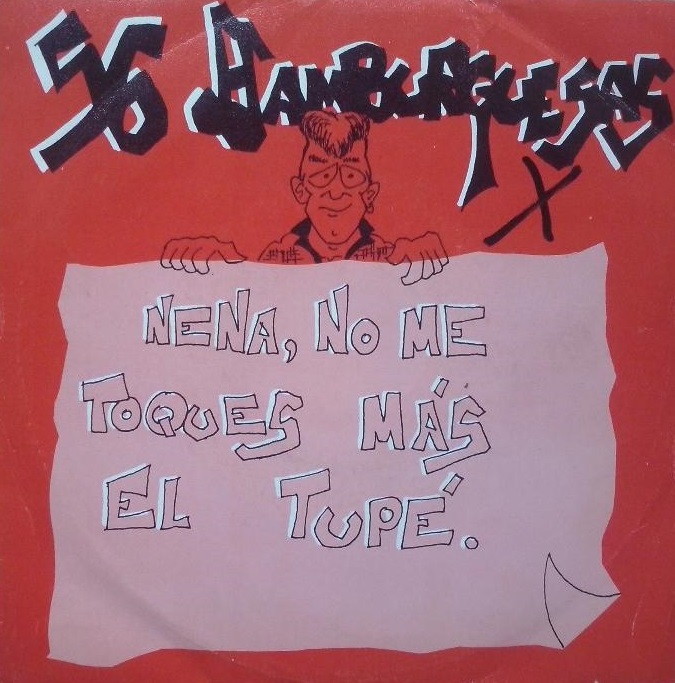 56 HAMBURGUESAS
X
NENA, NO ME
TOQUES MÁS
EL TUPÉ.